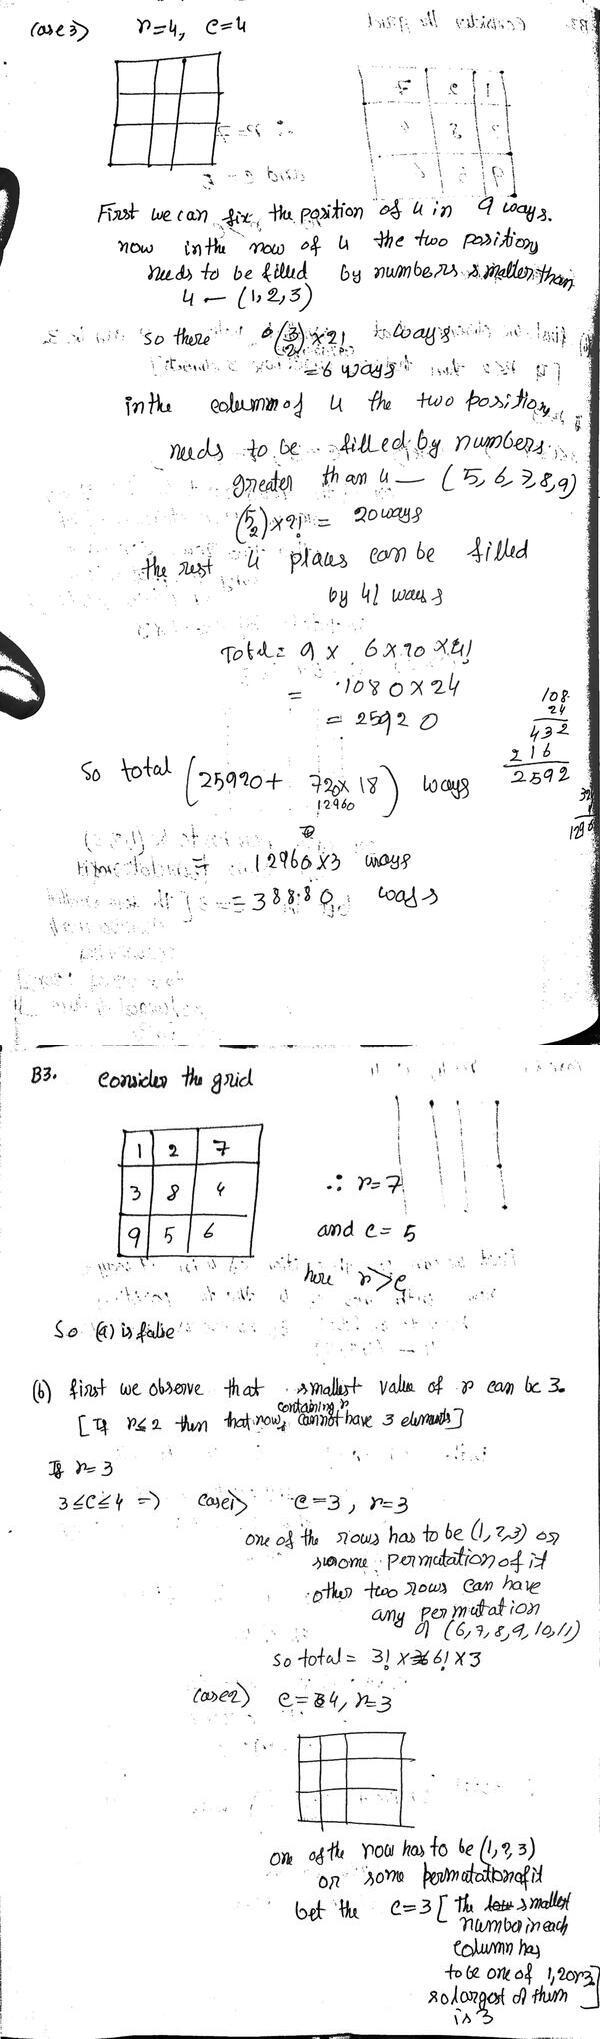 Case 3) r=4, c=4
First we can fix the position of 4 in 9 ways.
now in the row of 4 the two positions
needs to be filled by numbers smaller than
4 — (1,2,3)
so there (3 2) × 2! ways
= 6 ways
in the column of 4 the two positions
needs to be filled by numbers
greater than 4 — (5,6,7,8,9)
(5 2) × 2! = 20 ways
the rest 4 places can be filled
by 4! ways
Total = 9 × 6 × 20 × 4!
= 1080 × 24
= 25920
108
24
432
216
2592
So total (25920 + 720 × 18) ways
12960
= 12960 × 3 ways
= 38880 ways
B3. Consider the grid
1 2 7
3 8 4
9 5 6
∴ r=7
and c = 5
here r>c
So (a) is false
(b) first we observe that smallest value of r can be 3.
[If r≤2 then that row containing r cannot have 3 elements]
If r=3
3≤c≤4 => Case 1) c=3, r=3
one of the rows has to be (1,2,3) or
some permutation of it
other two rows can have
any permutation
of (6,7,8,9,10,11)
so total = 3! × 6! × 3
Case 2) c=4, r=3
one of the row has to be (1,2,3)
or some permutation of it
but the c=3 [The smallest
number in each
column has
to be one of 1,2 or 3
so largest of them ]
is 3